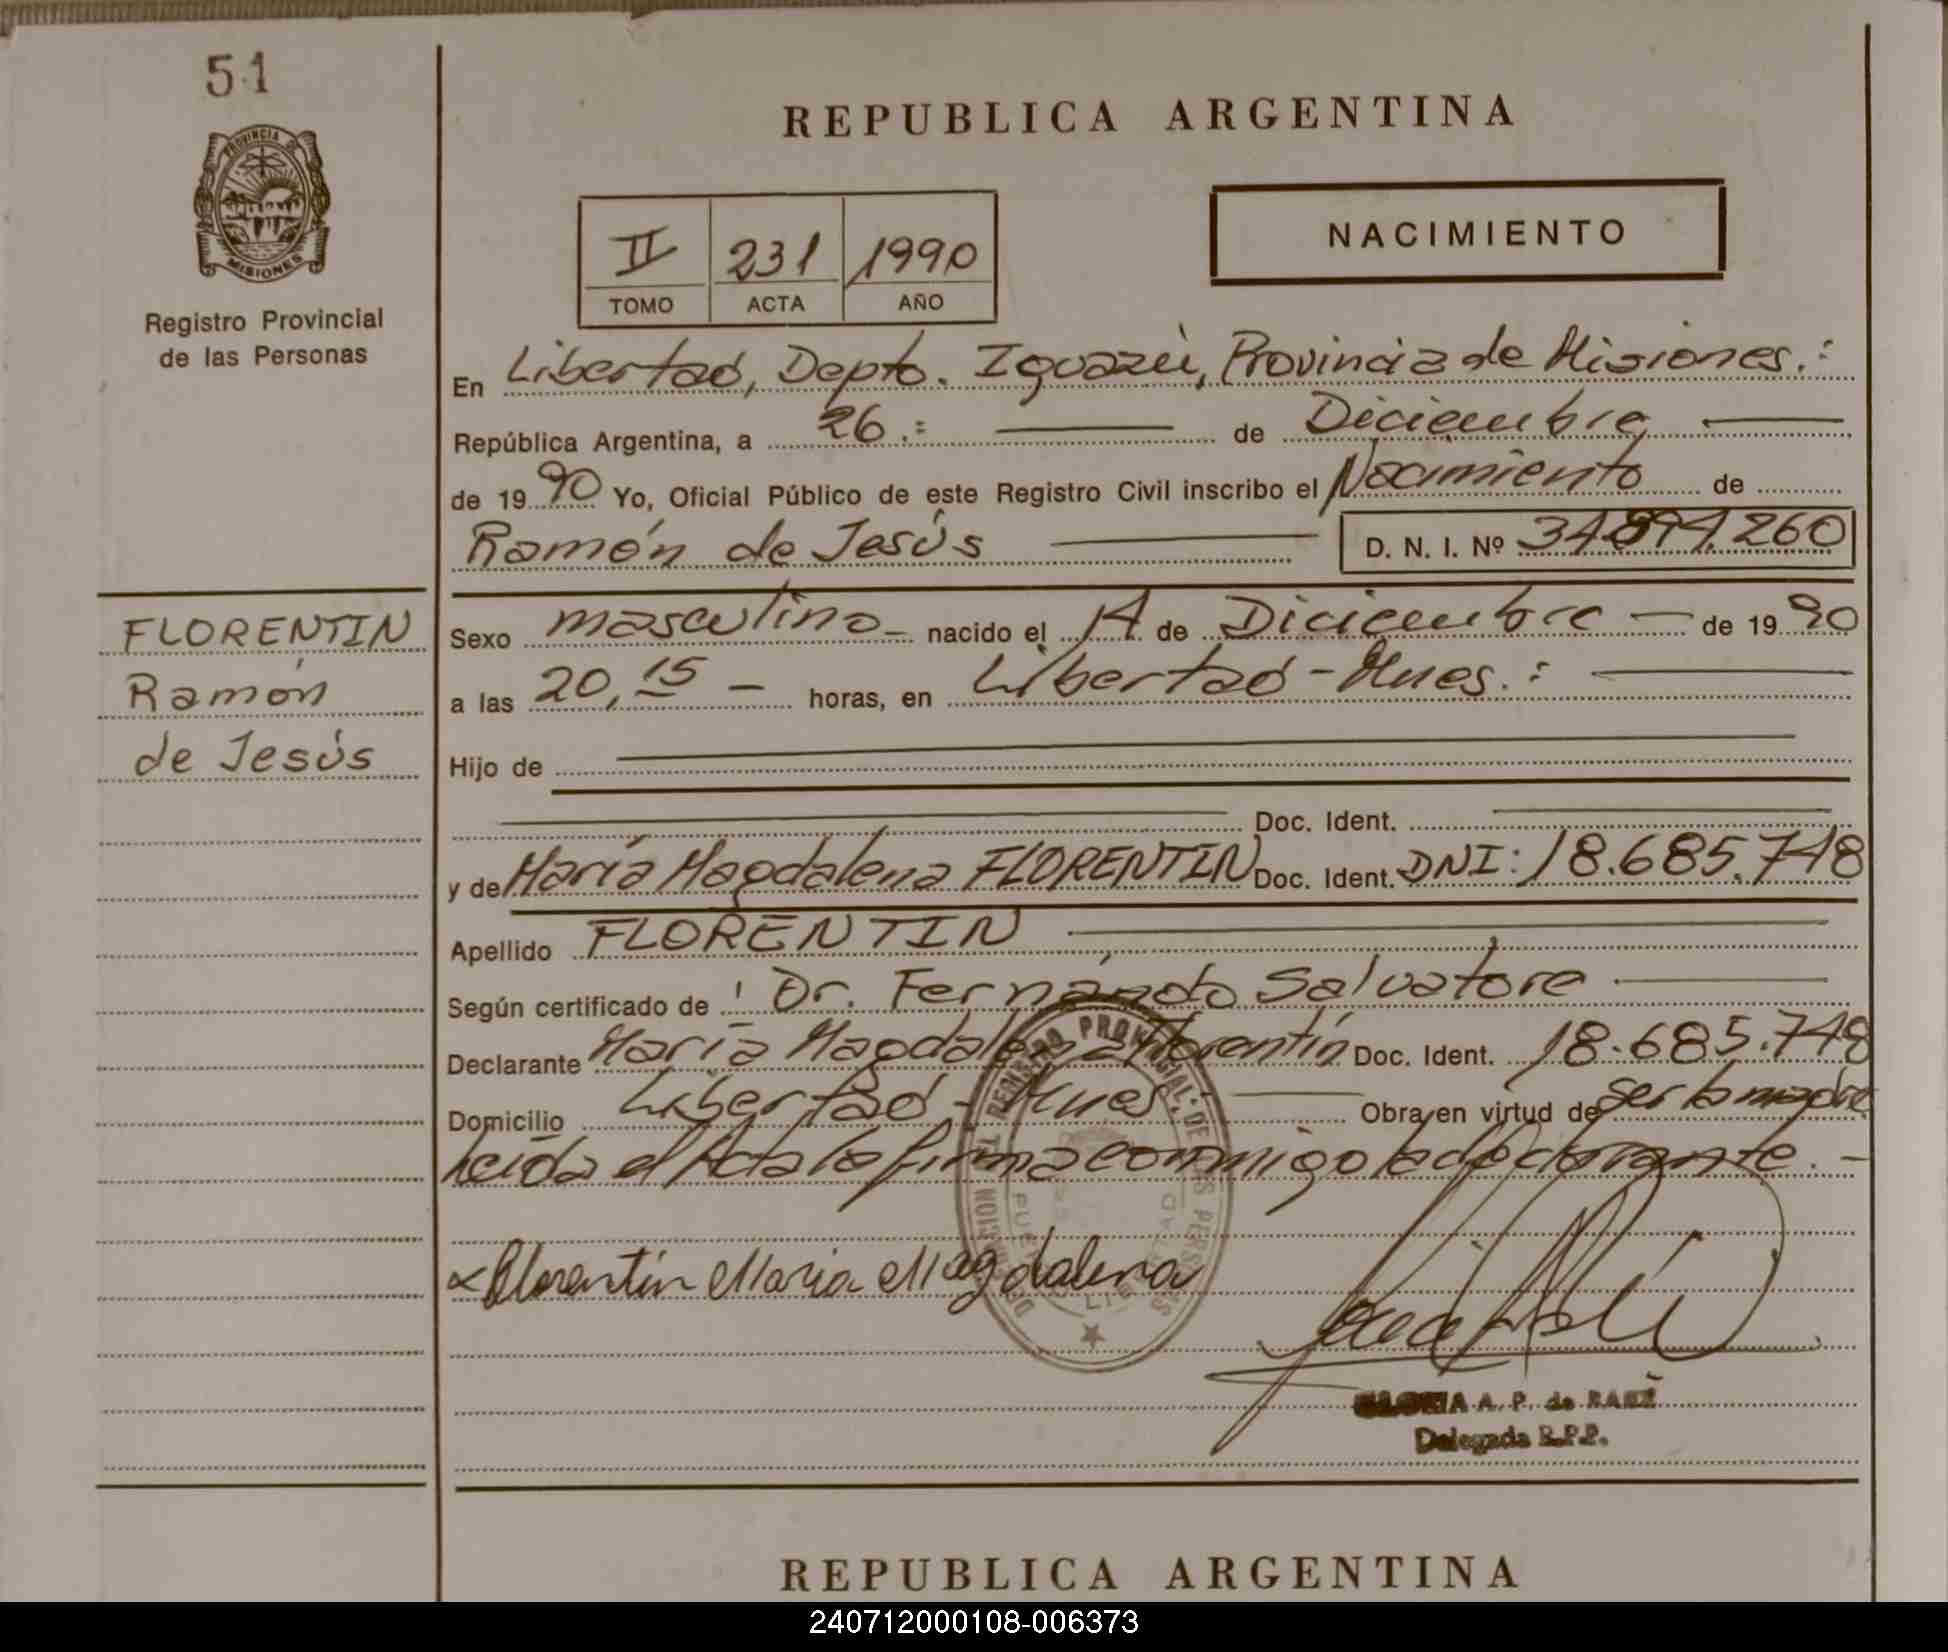 51
REPUBLICA ARGENTINA
PROVINCIA DE
MISIONES
Registro Provincial
de las Personas
II 231 1990
TOMO ACTA AÑO
NACIMIENTO
En Libertad, Depto. Iguazú, Provincia de Misiones.:
República Argentina, a 26.: de Diciembre
de 1990 Yo, Oficial Público de este Registro Civil inscribo el Nacimiento de
Ramón de Jesús D. N. I. Nº 34.894.260
FLORENTIN
Ramón
de Jesús
Sexo masculino - nacido el 14 de Diciembre - de 1990
a las 20,15 - horas, en Libertad - Mnes.:
Hijo de
Doc. Ident.
y de María Magdalena FLORENTIN Doc. Ident. DNI: 18.685.748
Apellido FLORENTIN
Según certificado de : Dr. Fernándo Salvatore
Declarante María Magdalena Florentín Doc. Ident. 18.685.748
Domicilio Libertad - Mnes. Obra en virtud de ser la madre
Leída el Acta la firma conmigo la declarante. -
Florentín Maria Magdalena
REGISTRO PROVINCIAL DE LAS PERSONAS
GLORIA A. P. de BAEZ
Delegada R.P.P.
REPUBLICA ARGENTINA
240712000108-006373